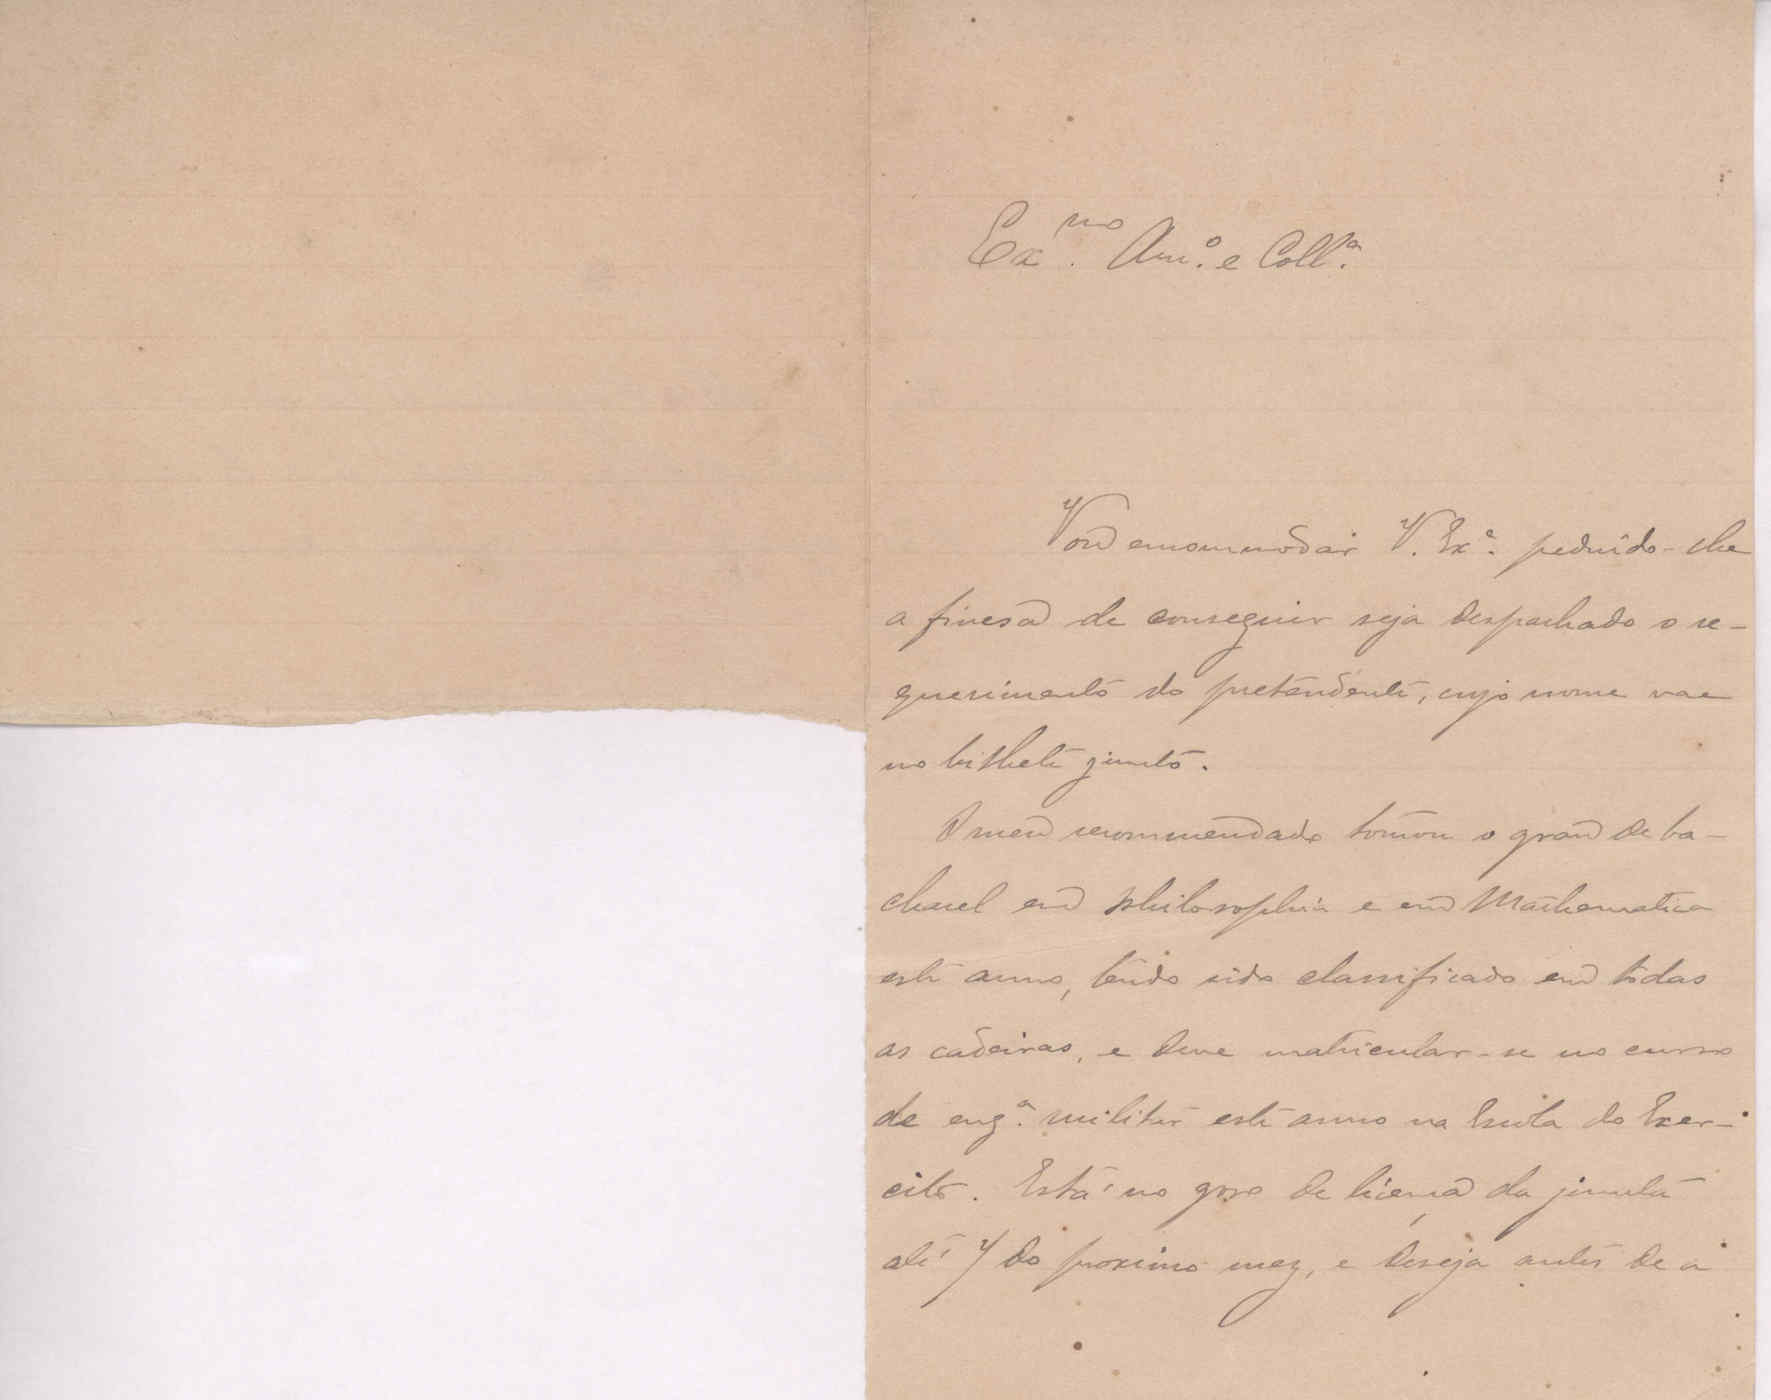 Ex.mo Am.º e Coll.ª
Vou encommodar V. Exª. pedindo-lhe
a finesa de conseguir seja despachado o re-
querimento do pretendente, cujo nome vae
no bilhete junto.
O meu recommendado tomou o grau de ba-
charel em philosophia e em Mathematica
este anno, tendo sido classificado em todas
as cadeiras, e deve matricular-se no curso
de eng.ª militar este anno na Escola do Exer-
cito. Está no goso de licença da junta
até 7 do proximo mez, e deseja antes de a